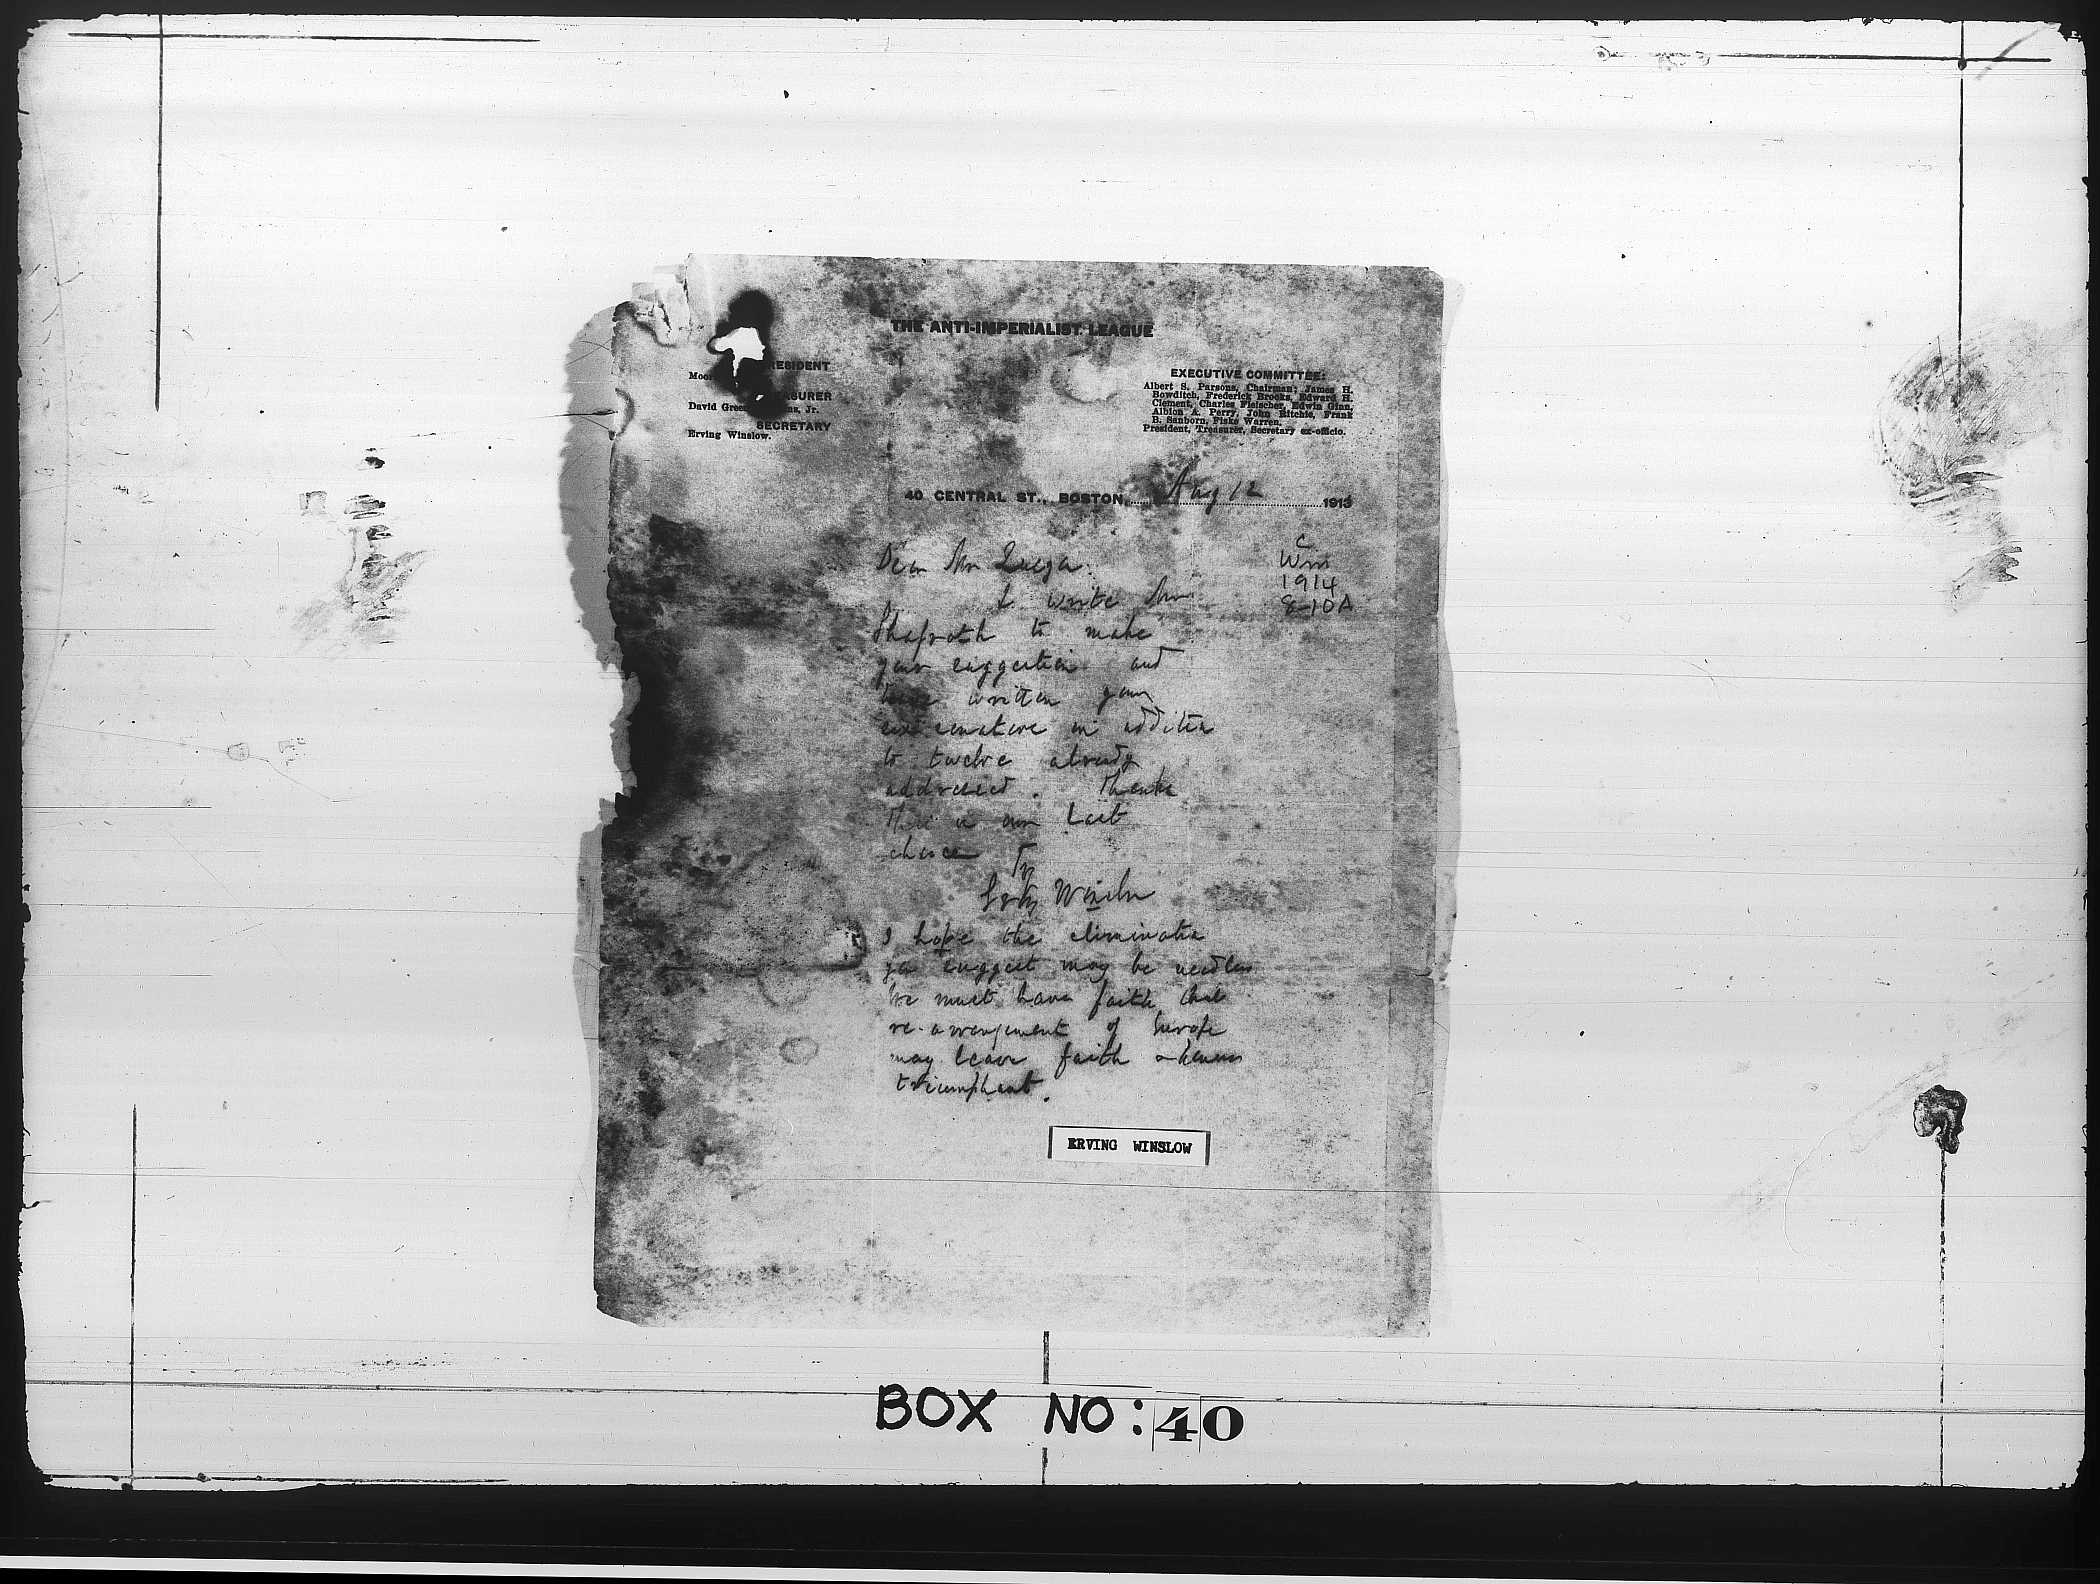 THE ANTI-IMPERIALIST LEAGUE
RESIDENT
Moor
SURER
David Gree ns, Jr.
SECRETARY
Erving Winslow.
EXECUTIVE COMMITTEE:
Albert S. Parsons, Chairman; James H.
Bowditch, Frederick Brooks, Edward H.
Clement, Charles Fleischer, Edwin Ginn,
Albion A. Perry, John Ritchie, Frank
B. Sanborn, Fiske Warren.
President, Treasurer, Secretary ex-officio.
40 CENTRAL ST., BOSTON, Aug 12 1913
C
Wm
1914
8-10A
Dear Mr
I write
Shafroth to make
your suggestion and
have written
in addition
to twelve already
addressed. Thanks
This is our last
chance
Winslow
I hope the elimination
you suggest may be needless
We must have faith that
re-arrangement of Europe
may leave faith &
triumphant.
ERVING WINSLOW
BOX NO: 40